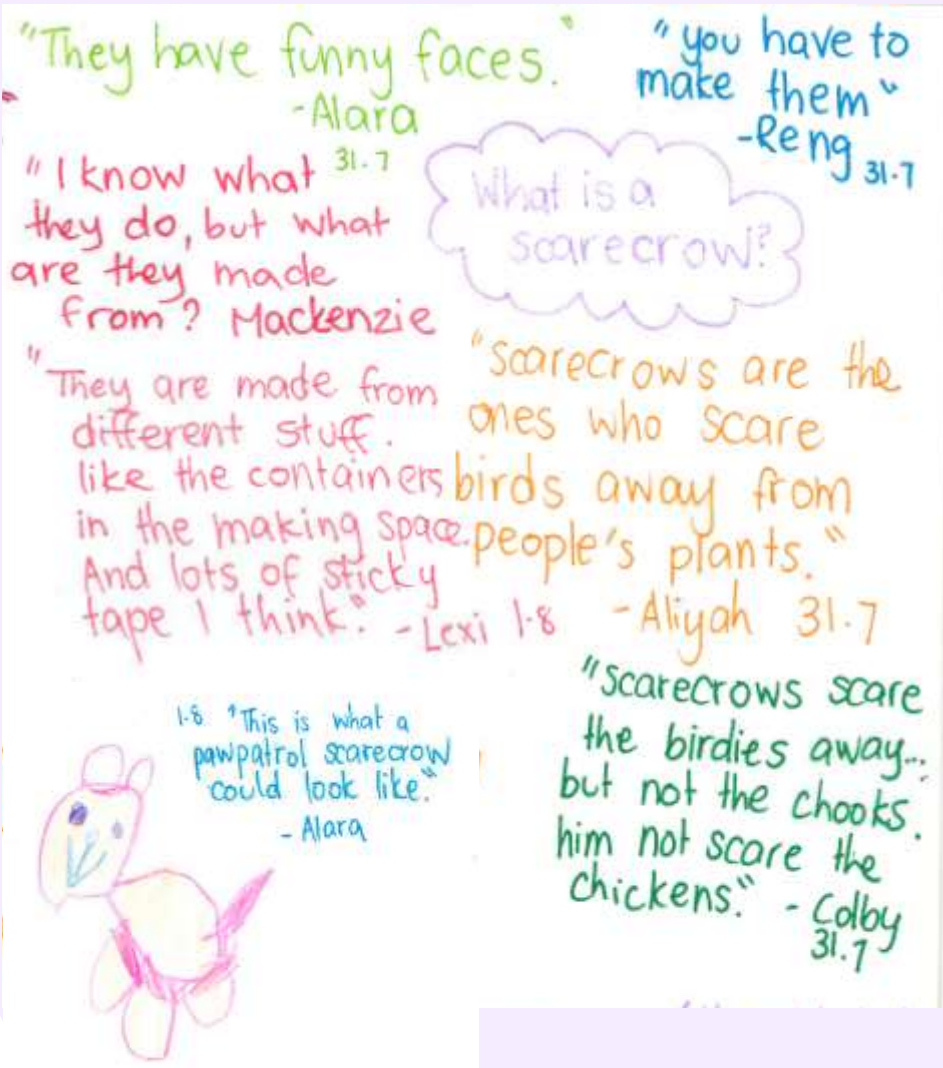 "They have funny faces."
-Alara
31.7
"you have to
make them"
-Reng 31.7
What is a
scarecrow?
"I know what
they do, but what
are they made
from? Mackenzie
"They are made from
different stuff.
like the containers
in the making space.
And lots of sticky
tape I think." -Lexi 1.8
"Scarecrows are the
ones who scare
birds away from
people's plants."
-Aliyah 31.7
1.8 "This is what a
pawpatrol scarecrow
could look like."
- Alara
"Scarecrows scare
the birdies away...
but not the chooks.
him not scare the
chickens." - Colby
31.7